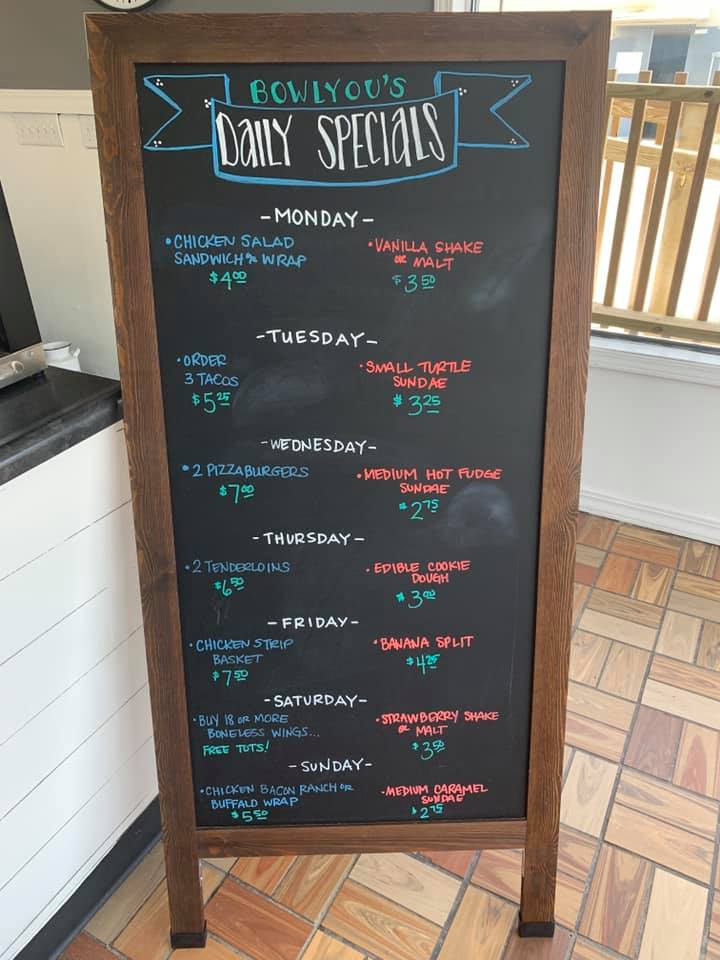 BOWLYOU'S
DAILY SPECIALS
-MONDAY-
• CHICKEN SALAD
SANDWICH or WRAP
$4.00
• VANILLA SHAKE
or MALT
$3.50
-TUESDAY-
• ORDER
3 TACOS
$5.25
• SMALL TURTLE
SUNDAE
$3.25
-WEDNESDAY-
• 2 PIZZABURGERS
$7.00
• MEDIUM HOT FUDGE
SUNDAE
$2.75
-THURSDAY-
• 2 TENDERLOINS
$6.50
• EDIBLE COOKIE
DOUGH
$3.00
-FRIDAY-
• CHICKEN STRIP
BASKET
$7.50
• BANANA SPLIT
$4.25
-SATURDAY-
• BUY 18 or MORE
BONELESS WINGS...
FREE TOTS!
• STRAWBERRY SHAKE
or MALT
$3.50
-SUNDAY-
• CHICKEN BACON RANCH OR
BUFFALO WRAP
$5.50
• MEDIUM CARAMEL
SUNDAE
$2.75